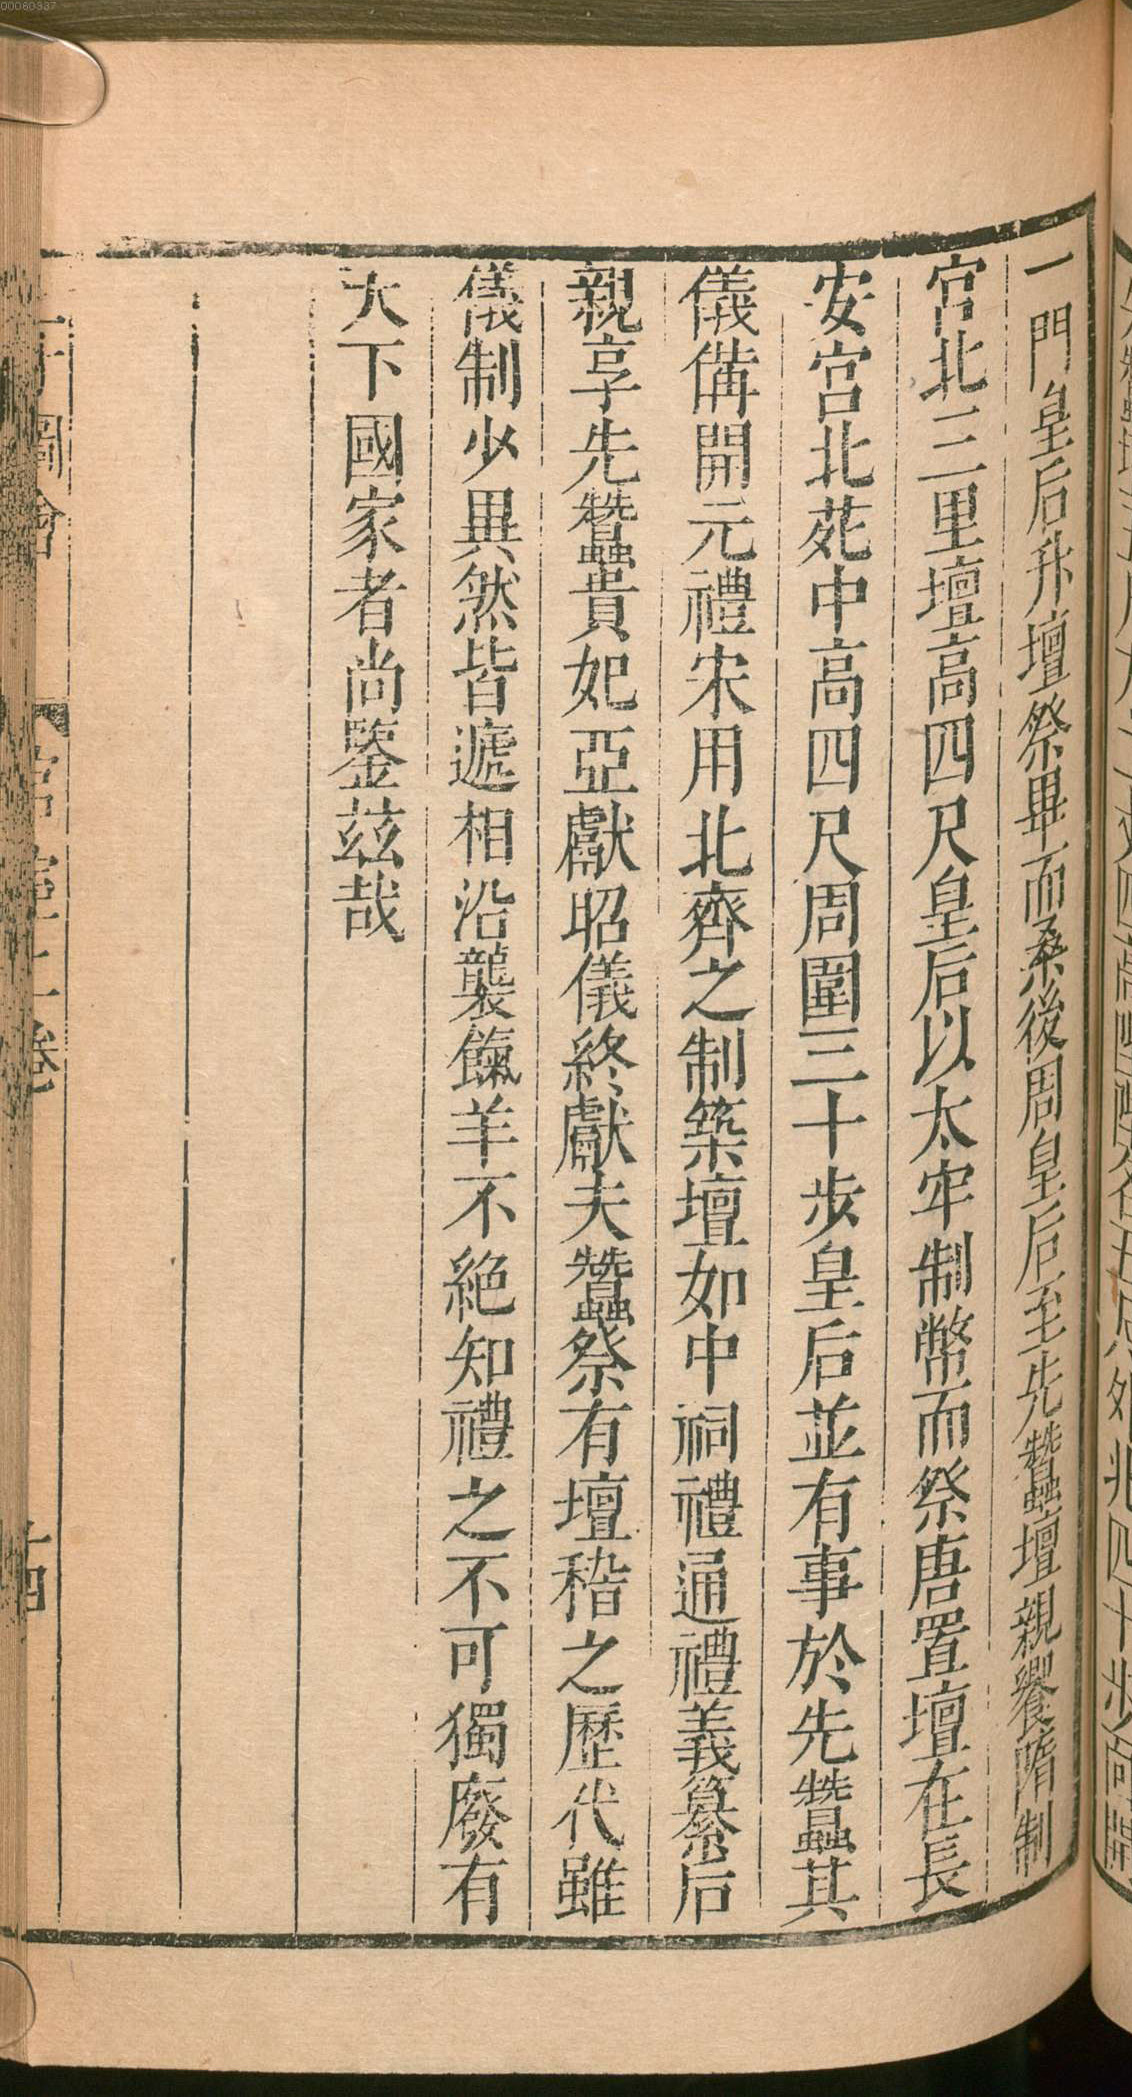 一門皇后升壇祭畢而桑後周皇后至先蠶壇親饗隋制
宮北三里壇高四尺皇后以太牢制幣而祭唐置壇在長
安宮北苑中高四尺周圍三十步皇后並有事於先蠶其
儀備開元禮宋用北齊之制築壇如中祠禮通禮義纂后
親享先蠶貴妃亞獻昭儀終獻夫蠶祭有壇稽之歷代雖
儀制少異然皆遞相沿襲餼羊不絕知禮之不可獨廢有
天下國家者尚鑒茲哉
圖會 宮室二卷 十四
00060337